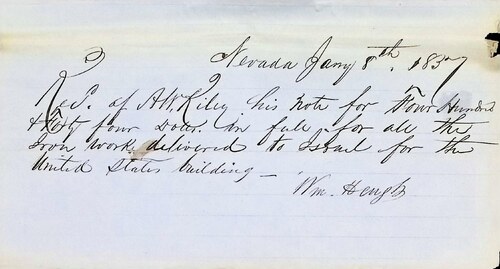 Nevada Jany 8th. 1857
Recd. of A W Riley his note for Four Hundred
& Fifty four Dollr. in full for all the
Iron work delivered to Israel for the
United States building —
Wm. Hengh